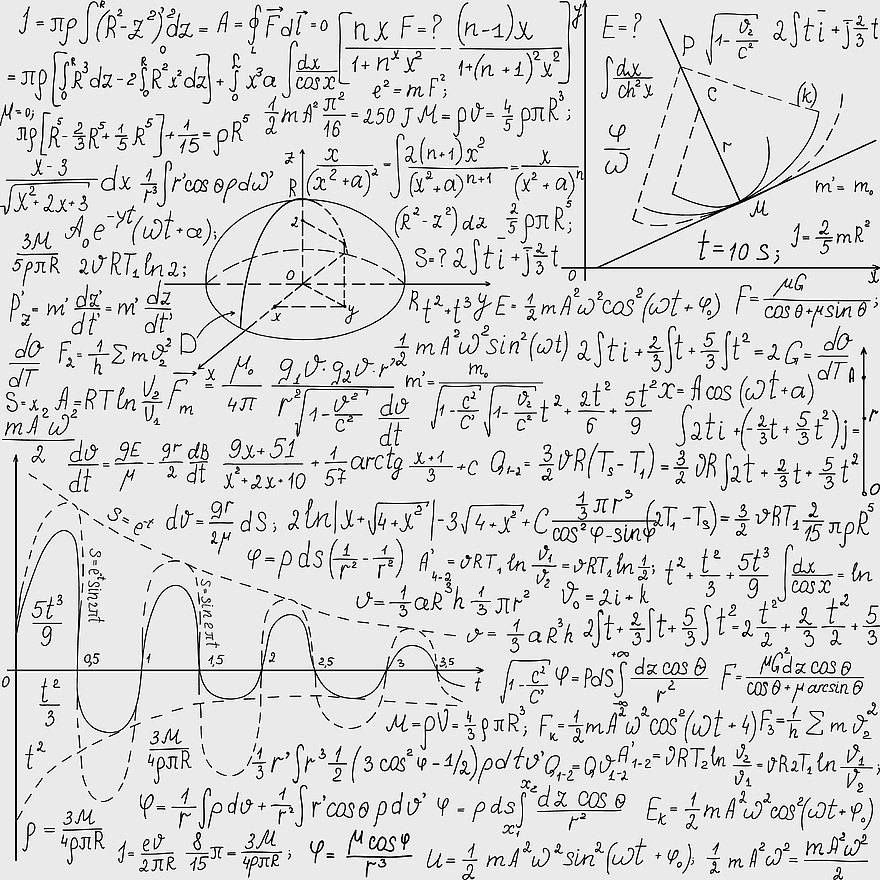 J = πρ∫₀ᴿ(R²-z²)²dz = A = ∮_L F⃗dl⃗ = 0 [nx F=? / 1+nˣx² - (n-1)x / 1+(n+1)²x²] y
E=? P √(1-v₂/c²) 2∫ti+j2/3t
= πρ[∫₀ᴿR³dz-2∫₀ᴿR²x²dz]+∫₀ᴿx³a ∫dx/cosx
e²=mF²;
∫dx/ch²x C (k)
M=0; 1/2mA²π²/16=250 JM=ρv=4/5ρπR³;
πρ[R⁵-2/3R⁵+1/5R⁵]+1/15=ρR⁵
φ/ω r
x-3/√(x²+2x+3) dx 1/r³∫r'cosθρdω'
z R x/(x²+a)²=∫2(n+1)x²/(x²+a)ⁿ⁺¹=x/(x²+a)ⁿ
m'=m₀
M
3M/5ρπR A₀e⁻ʸᵗ(ωt+α);
(R²-z²)dz 2/5ρπR⁵;
t=10 s; J=2/5mR²
2
2υRT₁ln2;
S=? 2∫ti+j2/3t
0 x
P'z=m'dz'/dt'=m'dz/dt'
0 x y
R t²+t³ y E=1/2mA²ω²cos²(ωt+φ₀) F=μG/cosθ+μsinθ;
D
dσ/dT F₂=1/h Σmv₂²
1/2mA²ω²sin²(ωt) 2∫ti+2/3∫t+5/3∫t²=2G=dσ/dT
A
S=x₂ A=RTln V₂/V₁ F⃗m x μ₀/4π g₁v·g₂v·r'²/r²√(1-v²/c²) m'=m₀/√(1-c²/c')√(1-v₂/c²) t²+2t²/6+5t²/9 x=Acos(ωt+a)
mA²ω²
dσ/dt
∫2ti+(-2/3t+5/3t²)j=
r
2 dv/dt=gE/μ-gr/2 dB/dt 9x+51/x²+2x+10+1/57arctg x+1/3+c Q₁₋₂=3/2υR(T₅-T₁)=3/2υR∫2t+2/3t+5/3t²
0
S=e⁻ᵗ dv=gr/2μ dS; 2ln|x+√(4+x²)|-3√(4+x²)+C 1/3πr³/cos²φ-sinφ(2T₁-T₅)=3/2υRT₁2/15πρR⁵
S=eᵗsin2πt
φ=ρds(1/r²-1/r²) A'₄₋₂=υRT₁ln v₁/v₂=υRT₁ln1/2; t²+t²/3+5t³/9 ∫dx/cosx=ln
S=sin2πt
5t³/9
v=1/3aR³h 1/3πr² v₀=2i+k
v=1/3aR³h 2∫t+2/3∫t+5/3∫t²=2t²/2+2/3t²/2+5/3
0 0,5 1 1,5 2 2,5 3 3,5 t
√(1-c²/c') φ=PdS∫₋∞⁺∞dzcosθ/r² F=μG²dzcosθ/cosθ+μarcsinθ
t²/3
M=ρV=4/3ρπR³; Fₖ=1/2mA²ω²cos²(ωt+4)F₃=1/h Σmv₂²
t² 3M/4ρπR 1/3r'∫r³1/2(3cos²φ-1/2)ρdτv'Q₁₋₂=Qυ₁₋₂A'₁₋₂=υRT₂ln v₂/v₁=υR2T₁ln v₁/v₂;
φ=1/r∫ρdv+1/r²∫r'cosθρdv' φ=ρds∫ₓ₁ˣ²dzcosθ/r² Eₖ=1/2mA²ω²cos²(ωt+φ₀)
ρ=3M/4ρπR
J=ev/2πR 8/15π=3M/4ρπR; φ=Mcosφ/r³ u=1/2mA²ω²sin²(ωt+φ₀); 1/2mA²ω²=mA²ω²/2